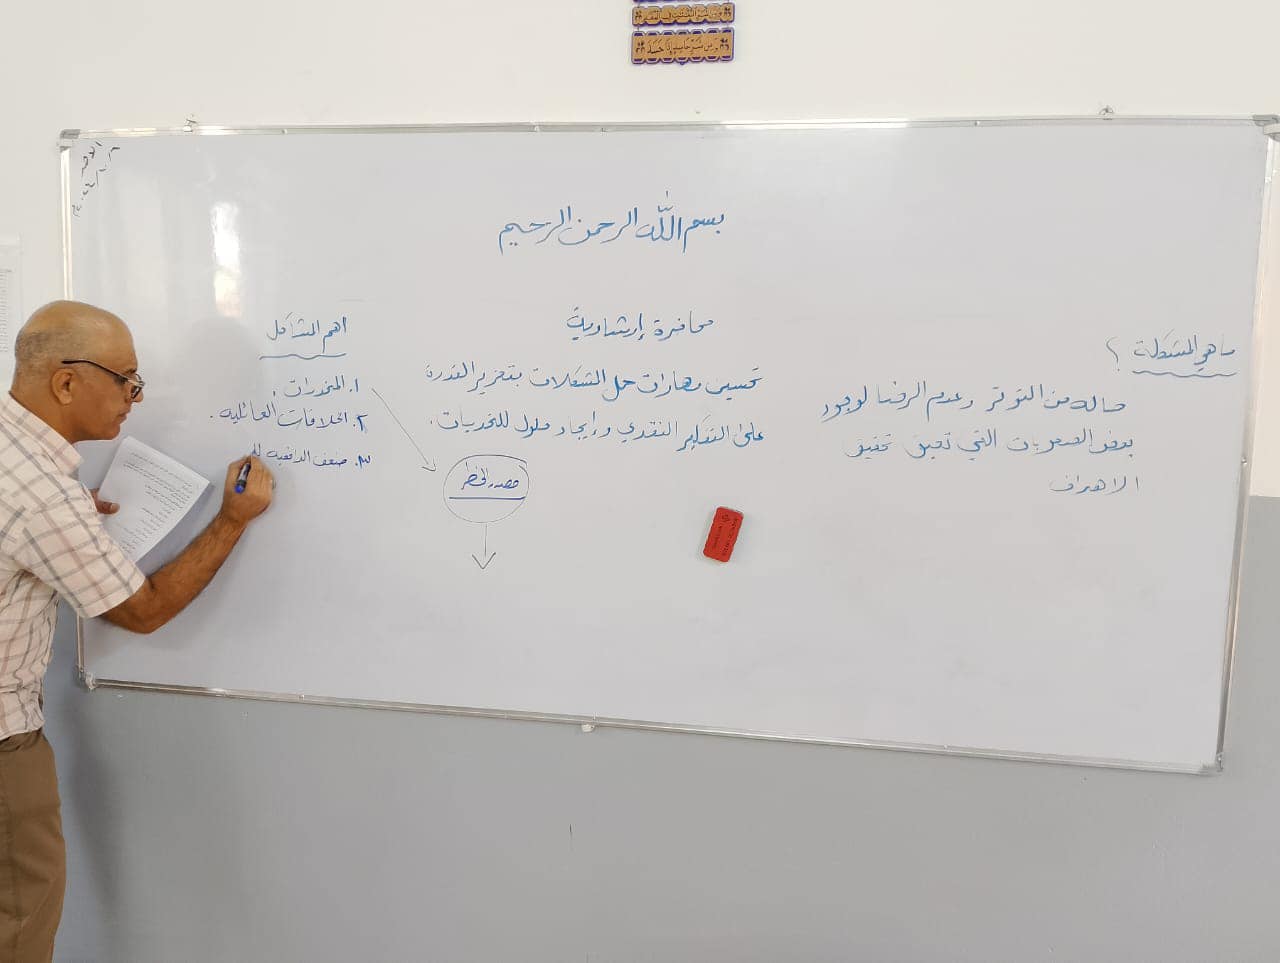 ومن شر حاسد إذا حسد
الاحد
بسم الله الرحمن الرحيم
محاضرة إرشادية
تحسين مهارات حل المشكلات بتعزيز القدرة
على التفكير النقدي وإيجاد حلول للتحديات.
ما هي المشكلة ؟
حاله من التوتر وعدم الرضا لوجود
بعض الصعوبات التي تعيق تحقيق
الاهداف
اهم المشاكل
١. المخدرات
٢. الخلافات العائليه.
٣. ضعف الدافعيه
مصدر الخطر